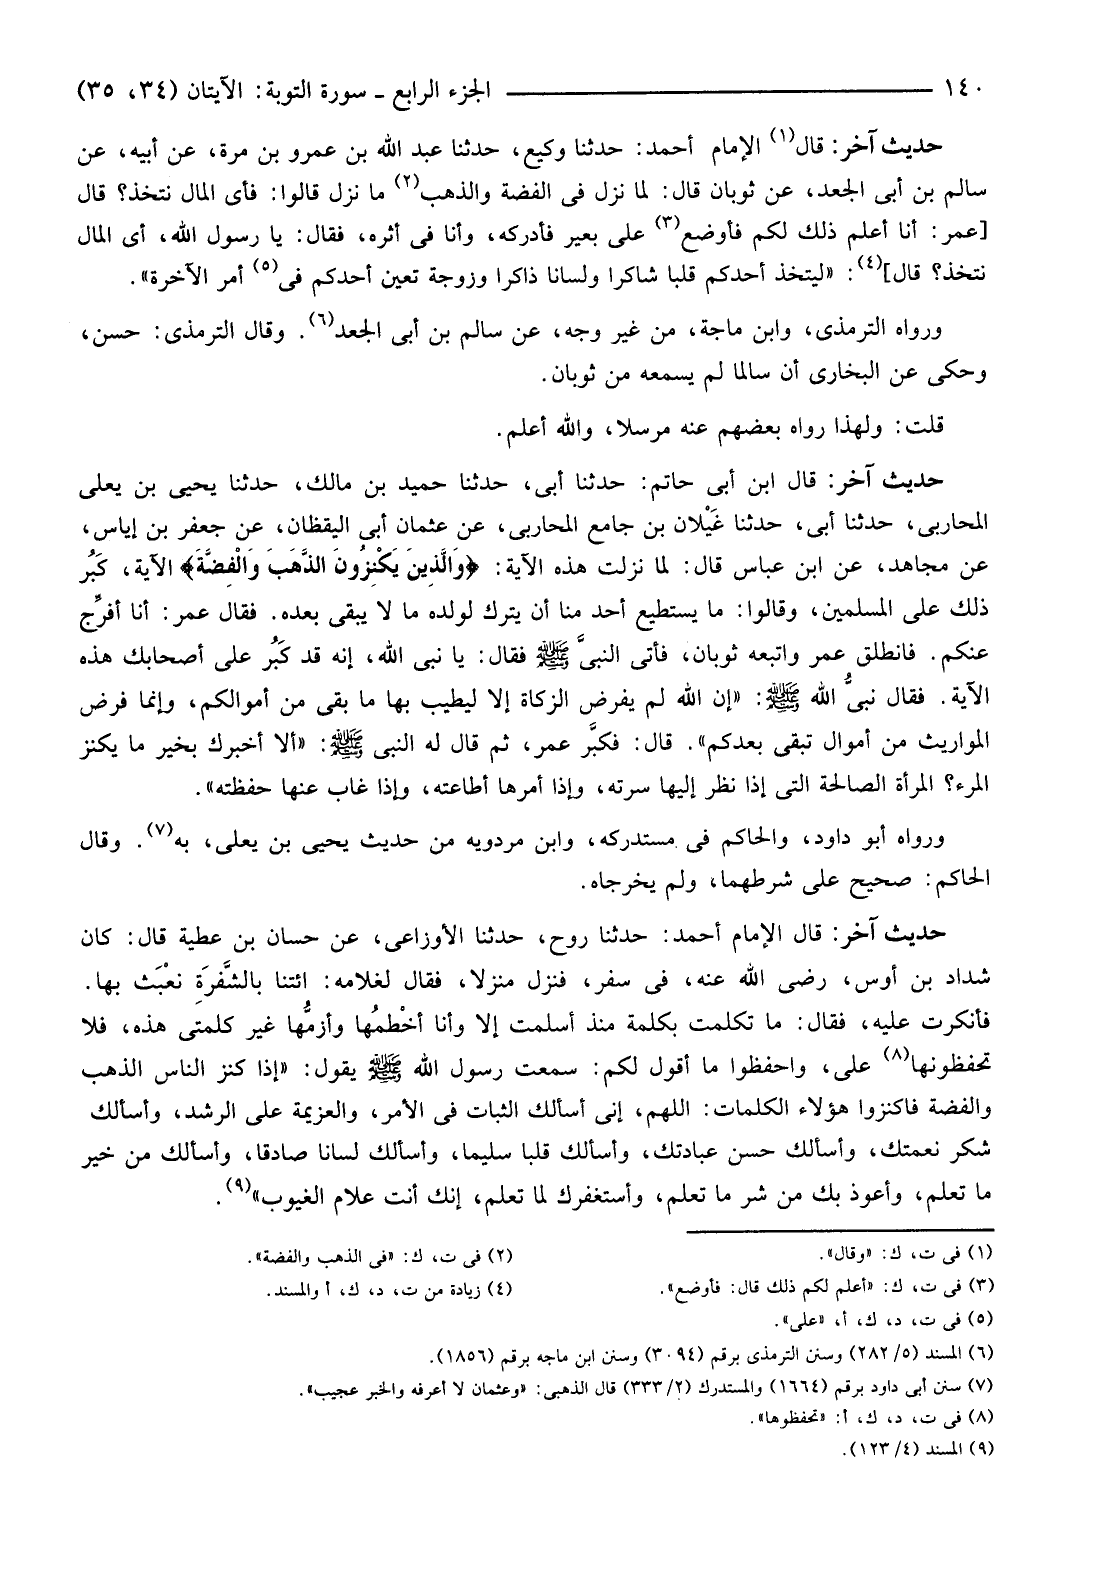 ١٤٠ ــــــــــــ الجزء الرابع ـ سورة التوبة: الآيتان (٣٤، ٣٥)
حديث آخر: قال(١) الإمام أحمد: حدثنا وكيع، حدثنا عبد الله بن عمرو بن مرة، عن أبيه، عن
سالم بن أبى الجعد، عن ثوبان قال: لما نزل فى الفضة والذهب(٢) ما نزل قالوا: فأى المال نتخذ؟ قال
[عمر: أنا أعلم ذلك لكم فأوضع(٣) على بعير فأدركه، وأنا فى أثره، فقال: يا رسول الله، أى المال
نتخذ؟ قال](٤): «ليتخذ أحدكم قلبا شاكرا ولسانا ذاكرا وزوجة تعين أحدكم فى(٥) أمر الآخرة».
ورواه الترمذى، وابن ماجة، من غير وجه، عن سالم بن أبى الجعد(٦). وقال الترمذى: حسن،
وحكى عن البخارى أن سالما لم يسمعه من ثوبان.
قلت: ولهذا رواه بعضهم عنه مرسلا، والله أعلم.
حديث آخر: قال ابن أبى حاتم: حدثنا أبى، حدثنا حميد بن مالك، حدثنا يحيى بن يعلى
المحاربى، حدثنا أبى، حدثنا غَيْلان بن جامع المحاربى، عن عثمان أبى اليقظان، عن جعفر بن إياس،
عن مجاهد، عن ابن عباس قال: لما نزلت هذه الآية: ﴿وَالَّذِينَ يَكْنِزُونَ الذَّهَبَ وَالْفِضَّةَ﴾ الآية، كَبُر
ذلك على المسلمين، وقالوا: ما يستطيع أحد منا أن يترك لولده ما لا يبقى بعده. فقال عمر: أنا أفرِّج
عنكم. فانطلق عمر واتبعه ثوبان، فأتى النبىَّ ﷺ فقال: يا نبى الله، إنه قد كَبُر على أصحابك هذه
الآية. فقال نبىُّ الله ﷺ: «إن الله لم يفرض الزكاة إلا ليطيب بها ما بقى من أموالكم، وإنما فرض
المواريث من أموال تبقى بعدكم». قال: فكبَّر عمر، ثم قال له النبى ﷺ: «ألا أخبرك بخير ما يكنز
المرء؟ المرأة الصالحة التى إذا نظر إليها سرته، وإذا أمرها أطاعته، وإذا غاب عنها حفظته».
ورواه أبو داود، والحاكم فى مستدركه، وابن مردويه من حديث يحيى بن يعلى، به(٧). وقال
الحاكم: صحيح على شرطهما، ولم يخرجاه.
حديث آخر: قال الإمام أحمد: حدثنا روح، حدثنا الأوزاعى، عن حسان بن عطية قال: كان
شداد بن أوس، رضى الله عنه، فى سفر، فنزل منزلا، فقال لغلامه: ائتنا بالشَّفرَةِ نعْبَث بها.
فأنكرت عليه، فقال: ما تكلمت بكلمة منذ أسلمت إلا وأنا أخْطمُها وأزمُّها غير كلمتى هذه، فلا
تحفظونها(٨) على، واحفظوا ما أقول لكم: سمعت رسول الله ﷺ يقول: «إذا كنز الناس الذهب
والفضة فاكنزوا هؤلاء الكلمات: اللهم، إنى أسألك الثبات فى الأمر، والعزيمة على الرشد، وأسألك
شكر نعمتك، وأسألك حسن عبادتك، وأسألك قلبا سليما، وأسألك لسانا صادقا، وأسألك من خير
ما تعلم، وأعوذ بك من شر ما تعلم، وأستغفرك لما تعلم، إنك أنت علام الغيوب»(٩).
(١) فى ت، ك: «وقال». (٢) فى ت، ك: «فى الذهب والفضة».
(٣) فى ت، ك: «أعلم لكم ذلك قال: فأوضع». (٤) زيادة من ت، د، ك، أ والمسند.
(٥) فى ت، د، ك، أ، «على».
(٦) المسند (٥/ ٢٨٢) وسنن الترمذى برقم (٣٠٩٤) وسنن ابن ماجه برقم (١٨٥٦).
(٧) سنن أبى داود برقم (١٦٦٤) والمستدرك (٢/ ٣٣٣) قال الذهبى: «وعثمان لا أعرفه والخبر عجيب».
(٨) فى ت، د، ك، أ: «تحفظوها».
(٩) المسند (٤/ ١٢٣).